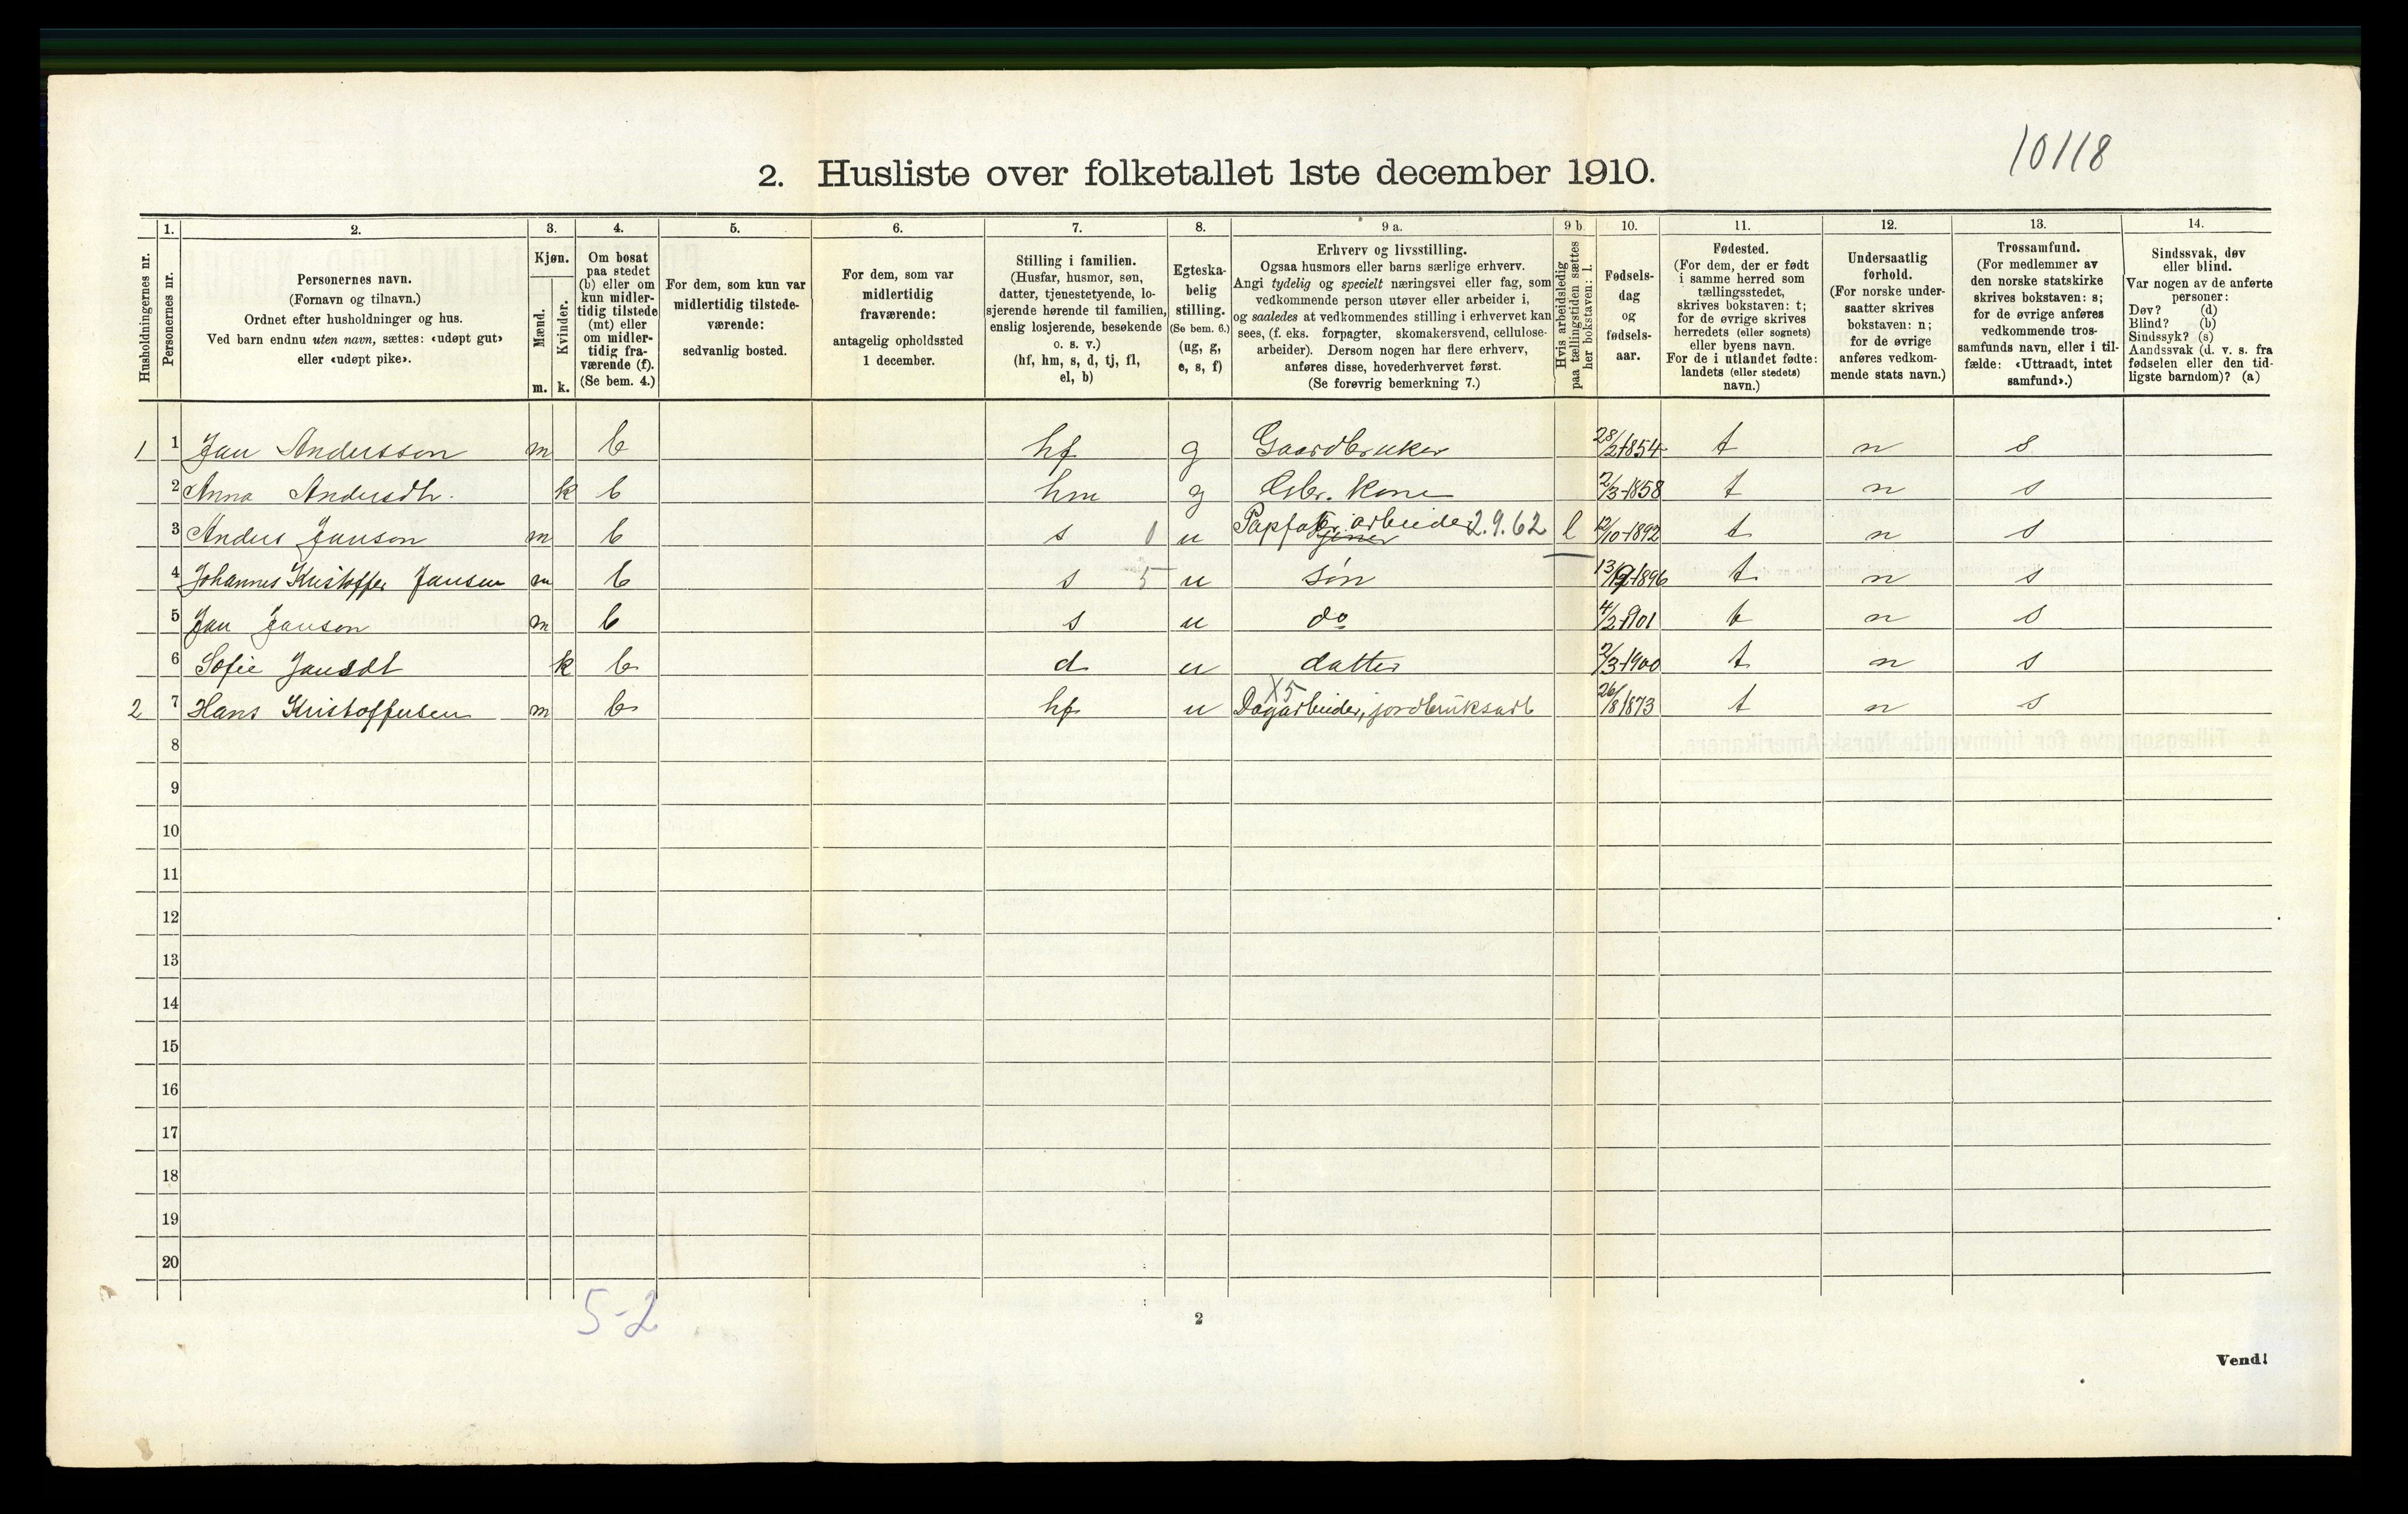 10118
2. Husliste over folketallet 1ste december 1910.
Husholdningernes nr.
1.
Personernes nr.
2.
Personernes navn.
(Fornavn og tilnavn.)
Ordnet efter husholdninger og hus.
Ved barn endnu uten navn, sættes: «udøpt gut»
eller «udøpt pike».
3.
Kjøn.
Mænd.
Kvinder.
m. k.
4.
Om bosat
paa stedet
(b) eller om
kun midler-
tidig tilstede
(mt) eller
om midler-
tidig fra-
værende (f).
(Se bem. 4.)
5.
For dem, som kun var
midlertidig tilstede-
værende:
sedvanlig bosted.
6.
For dem, som var
midlertidig
fraværende:
antagelig opholdssted
1 december.
7.
Stilling i familien.
(Husfar, husmor, søn,
datter, tjenestetyende, lo-
sjerende hørende til familien,
enslig losjerende, besøkende
o. s. v.)
(hf, hm, s, d, tj, fl,
el, b)
8.
Egteska-
belig
stilling.
(Se bem. 6.)
(ug, g,
e, s, f)
9 a.
Erhverv og livsstilling.
Ogsaa husmors eller barns særlige erhverv.
Angi tydelig og specielt næringsvei eller fag, som
vedkommende person utøver eller arbeider i,
og saaledes at vedkommendes stilling i erhvervet kan
sees, (f. eks. forpagter, skomakersvend, cellulose-
arbeider). Dersom nogen har flere erhverv,
anføres disse, hovederhvervet først.
(Se forøvrig bemerkning 7.)
9 b.
Hvis arbeidsledig
paa tællingstiden sættes
her bokstaven: l.
10.
Fødsels-
dag
og
fødsels-
aar.
11.
Fødested.
(For dem, der er født
i samme herred som
tællingsstedet,
skrives bokstaven: t;
for de øvrige skrives
herredets (eller sognets)
eller byens navn.
For de i utlandet fødte:
landets (eller stedets)
navn.)
12.
Undersaatlig
forhold.
(For norske under-
saatter skrives
bokstaven: n;
for de øvrige
anføres vedkom-
mende stats navn.)
13.
Trossamfund.
(For medlemmer av
den norske statskirke
skrives bokstaven: s;
for de øvrige anføres
vedkommende tros-
samfunds navn, eller i til-
fælde: «Uttraadt, intet
samfund».)
14.
Sindssvak, døv
eller blind.
Var nogen av de anførte
personer:
Døv? (d)
Blind? (b)
Sindssyk? (s)
Aandssvak (d. v. s. fra
fødselen eller den tid-
ligste barndom)? (a)
1 1 Jan Andersson m b hf g Gaardbruker 28/2 1854 t n s
2 Anna Andersdtr. k b hm g Gbr. kone 2/3-1858 t n s
3 Anders Janson m b s 0 u Papfabr. arbeider 2.9.62 l 12/10-1892 t n s
4 Johannes Kristoffer Jansen m b s 5 u søn 13/12-1896 t n s
5 Jan Janson m b s u do 4/2-1901 t n s
6 Sofie Jansdt k b d u datter 2/3-1900 t n s
X5
2 7 Hans Kristoffersen m b hf u Dagarbeider, jordbruksarb 26/8 1873 t n s
8
9
10
11
12
13
14
15
16
17
18
19
20
5-2
2
Vend!